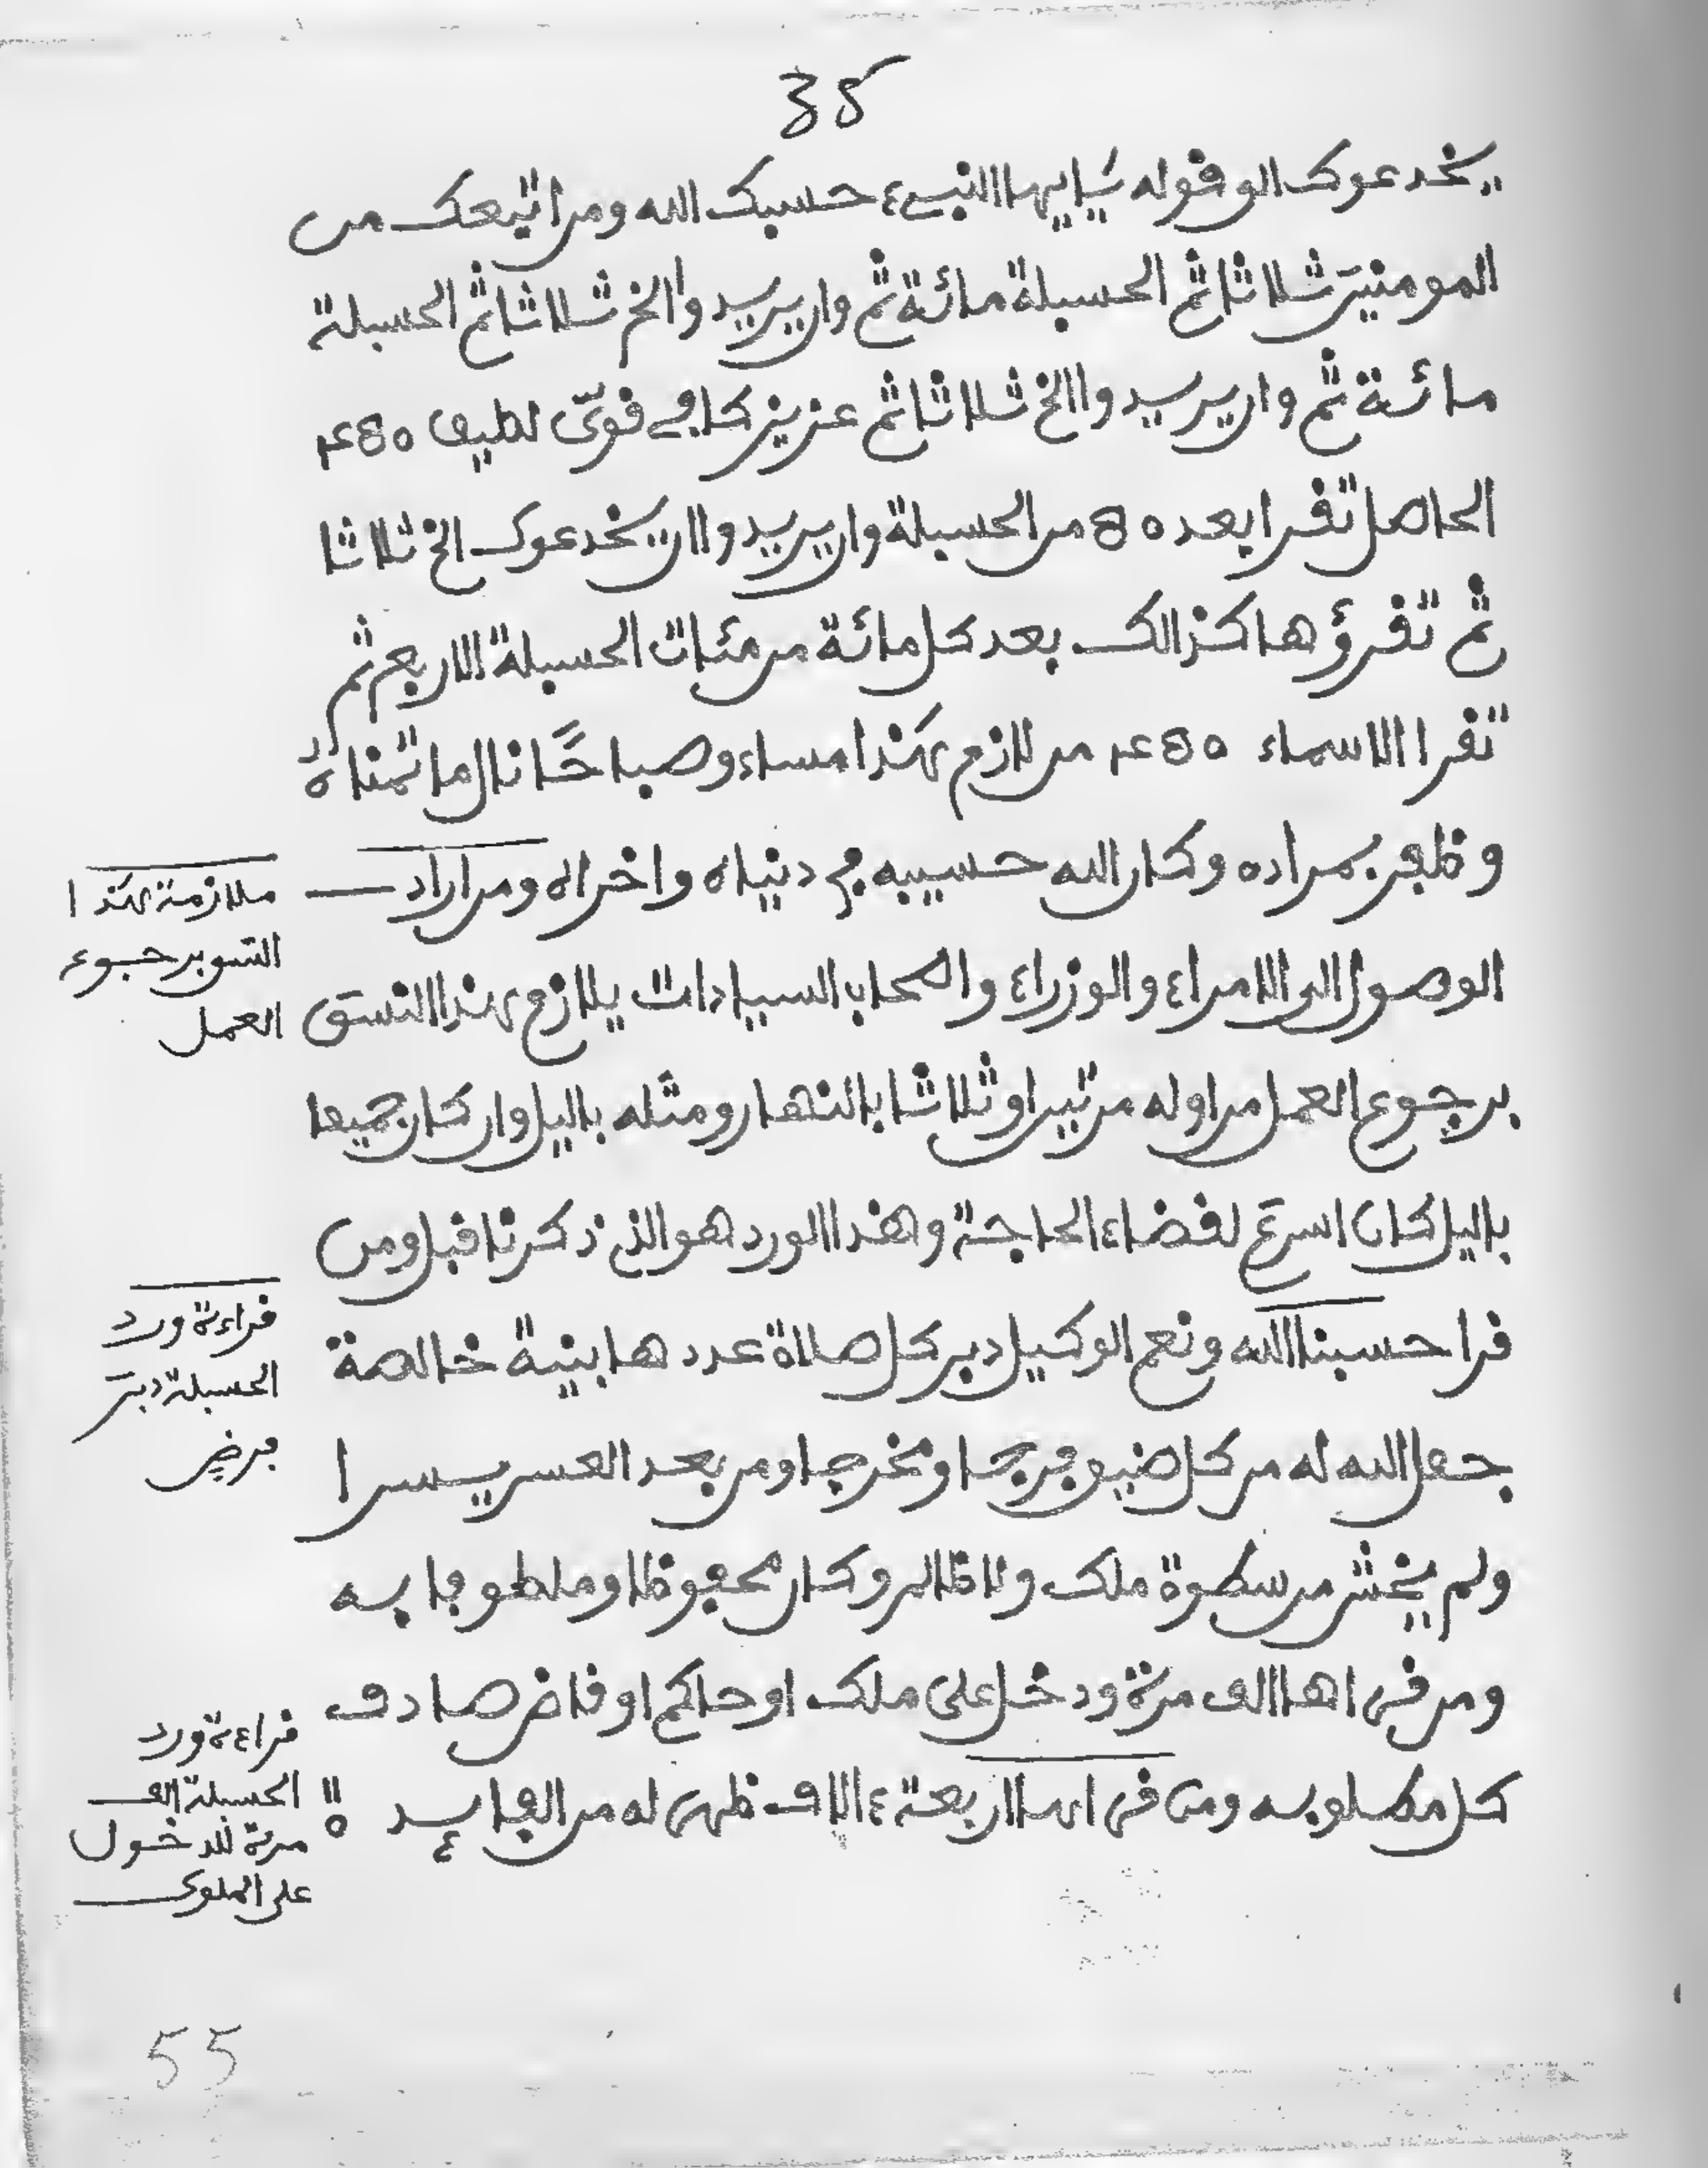 يخدعوك الى قوله يايها النبيء حسبك الله ومن اتبعك من
المومنين ثلاثا ثم الحسبلة مائة ثم وان يريدوا الخ ثلاثا ثم الحسبلة
مائة ثم وان يريدوا الخ ثلاثا ثم عزيز كافي قوي لطيف
الحاصل تقرا بعد من الحسبلة وان يريدوا ان يخدعوك الخ ثلاثا
ثم تقرؤها كذالك بعد كل مائة من مئات الحسبلة الاربع ثم
تقرا الاسماء من لازم هذا مساء وصباحا نال ما تمناه
وظفر بمراده وكان الله حسيبه في دنياه واخراه ومن اراد
الوصول الى الامراء والوزراء واصحاب السيادات يلازم هذا النسق
برجوع العمل من اوله مرتين او ثلاثا بالنهار ومثله باليل وان كان جميعا
باليل كان اسرع لقضاء الحاجة وهذا الورد هو الذي ذكرنا قبل ومن
قرا حسبنا الله ونعم الوكيل دبر كل صلاة عددها بنية خالصة
جعل الله له من كل ضيق فرجا ومخرجا ومن بعد العسر يسرا
ولم يخش من سطوة ملك ولا ظالم وكان محفوظا وملطوفا به
ومن قراها الف مرة ودخل على ملك او حاكم او قاض صادف
كل مطلوبه ومن قراها اربعة ءالاف ظهر له من الفايدة
ملازمة هذا
النسق برجوع
العمل
قراءة ورد
الحسبلة دبر
فرض
قراءة ورد
الحسبلة الف
مرة للدخول
على الملوك
55